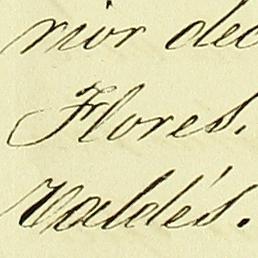 rior dec
Flores.
Valdés.